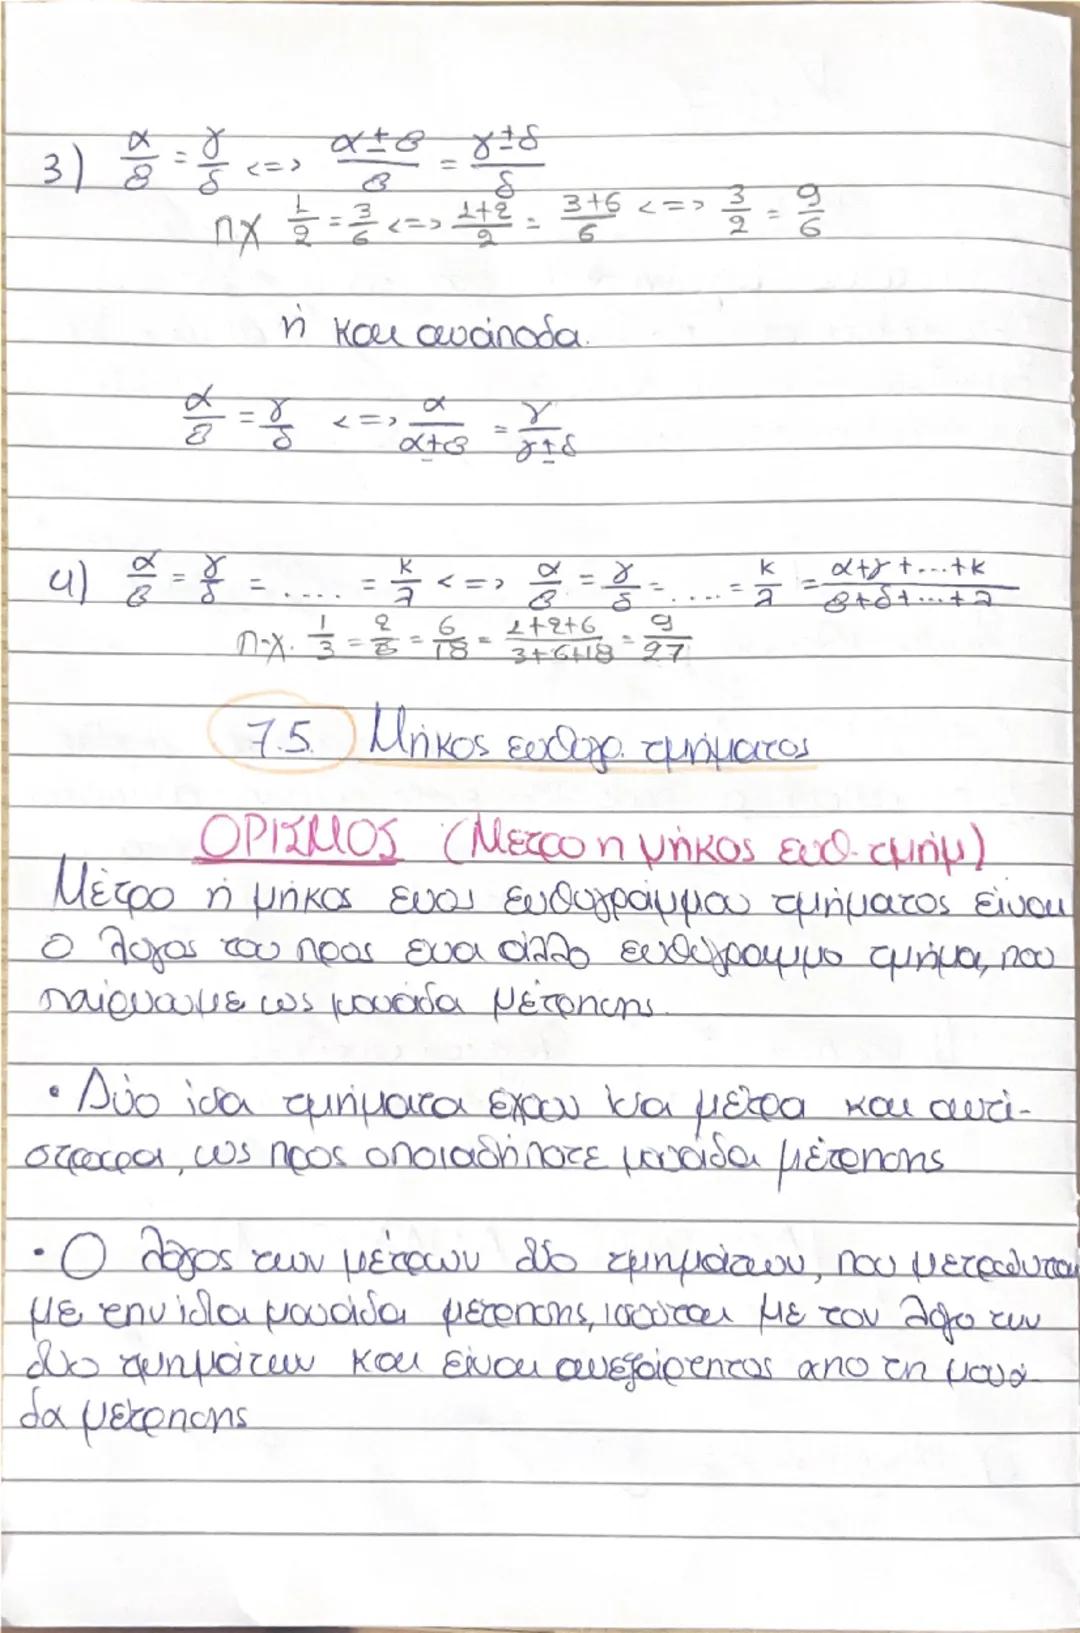 3) α/β = γ/δ <=> α±β/β = γ±δ/δ
πχ 1/2 = 3/6 <=> 1+2/2 = 3+6/6 <=> 3/2 = 9/6
ή και ανάποδα.
α/β = γ/δ <=> α/α±β = γ/γ±δ
4) α/β = γ/δ = .... = κ/λ <=> α/β = γ/δ = .... = κ/λ = α+γ+...+κ/β+δ+...+λ
π.χ. 1/3 = 2/6 = 6/18 = 1+2+6/3+6+18 = 9/27
7.5. Μήκος ευθυγρ. τμήματος
ΟΡΙΣΜΟΣ (Μετρο η μήκος ευθ. τμήμ)
Μέτρο ή μήκος ενος ευθυγράμμου τμήματος είναι
ο λογος του προς ενα άλλο ευθύγραμμο τμήμα, που
παίρναμε ως μονάδα μέτρησης.
• Δύο ίσα τμήματα έχουν ίσα μέτρα και αντί-
στροφα, ως προς οποιαδήποτε μονάδα μέτρησης
• Ο λόγος των μέτρων δύο τμημάτων, που μετρούνται
με την ίδια μονάδα μέτρησης, ισούται με τον λόγο των
δύο τμημάτων και είναι ανεξάρτητος απο τη μονά-
δα μέτρησης